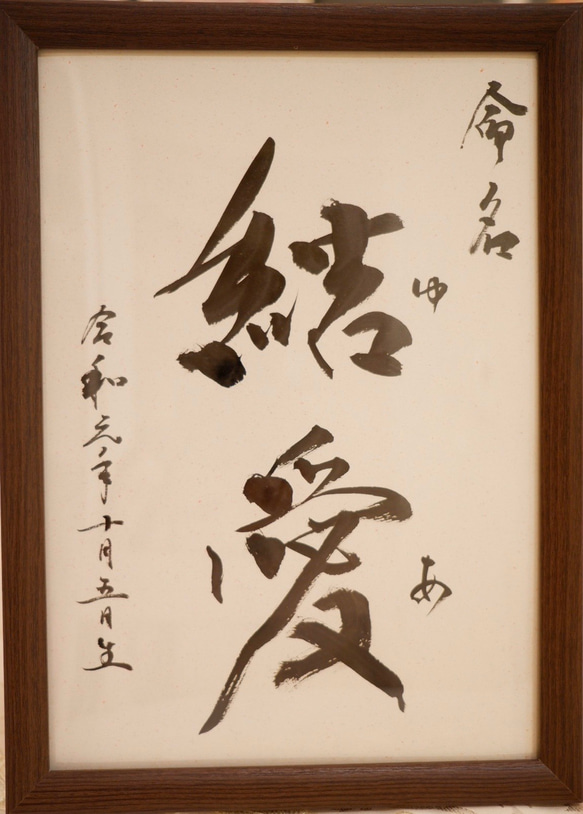 命名
結愛
ゆ
あ
令和元年十月五日生